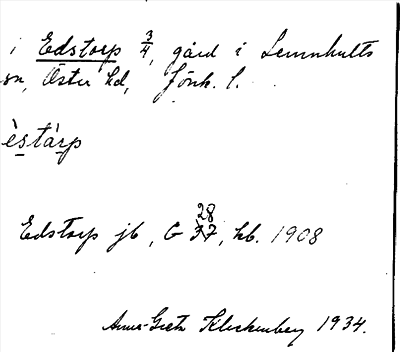 i Edstorp 3/4, gård i Lemnhults
sn, Öster hd, Jönk. l.
èstàrp
Edstorp jb, G 28 37, kb. 1908
Anna-Greta Klockenberg 1934.